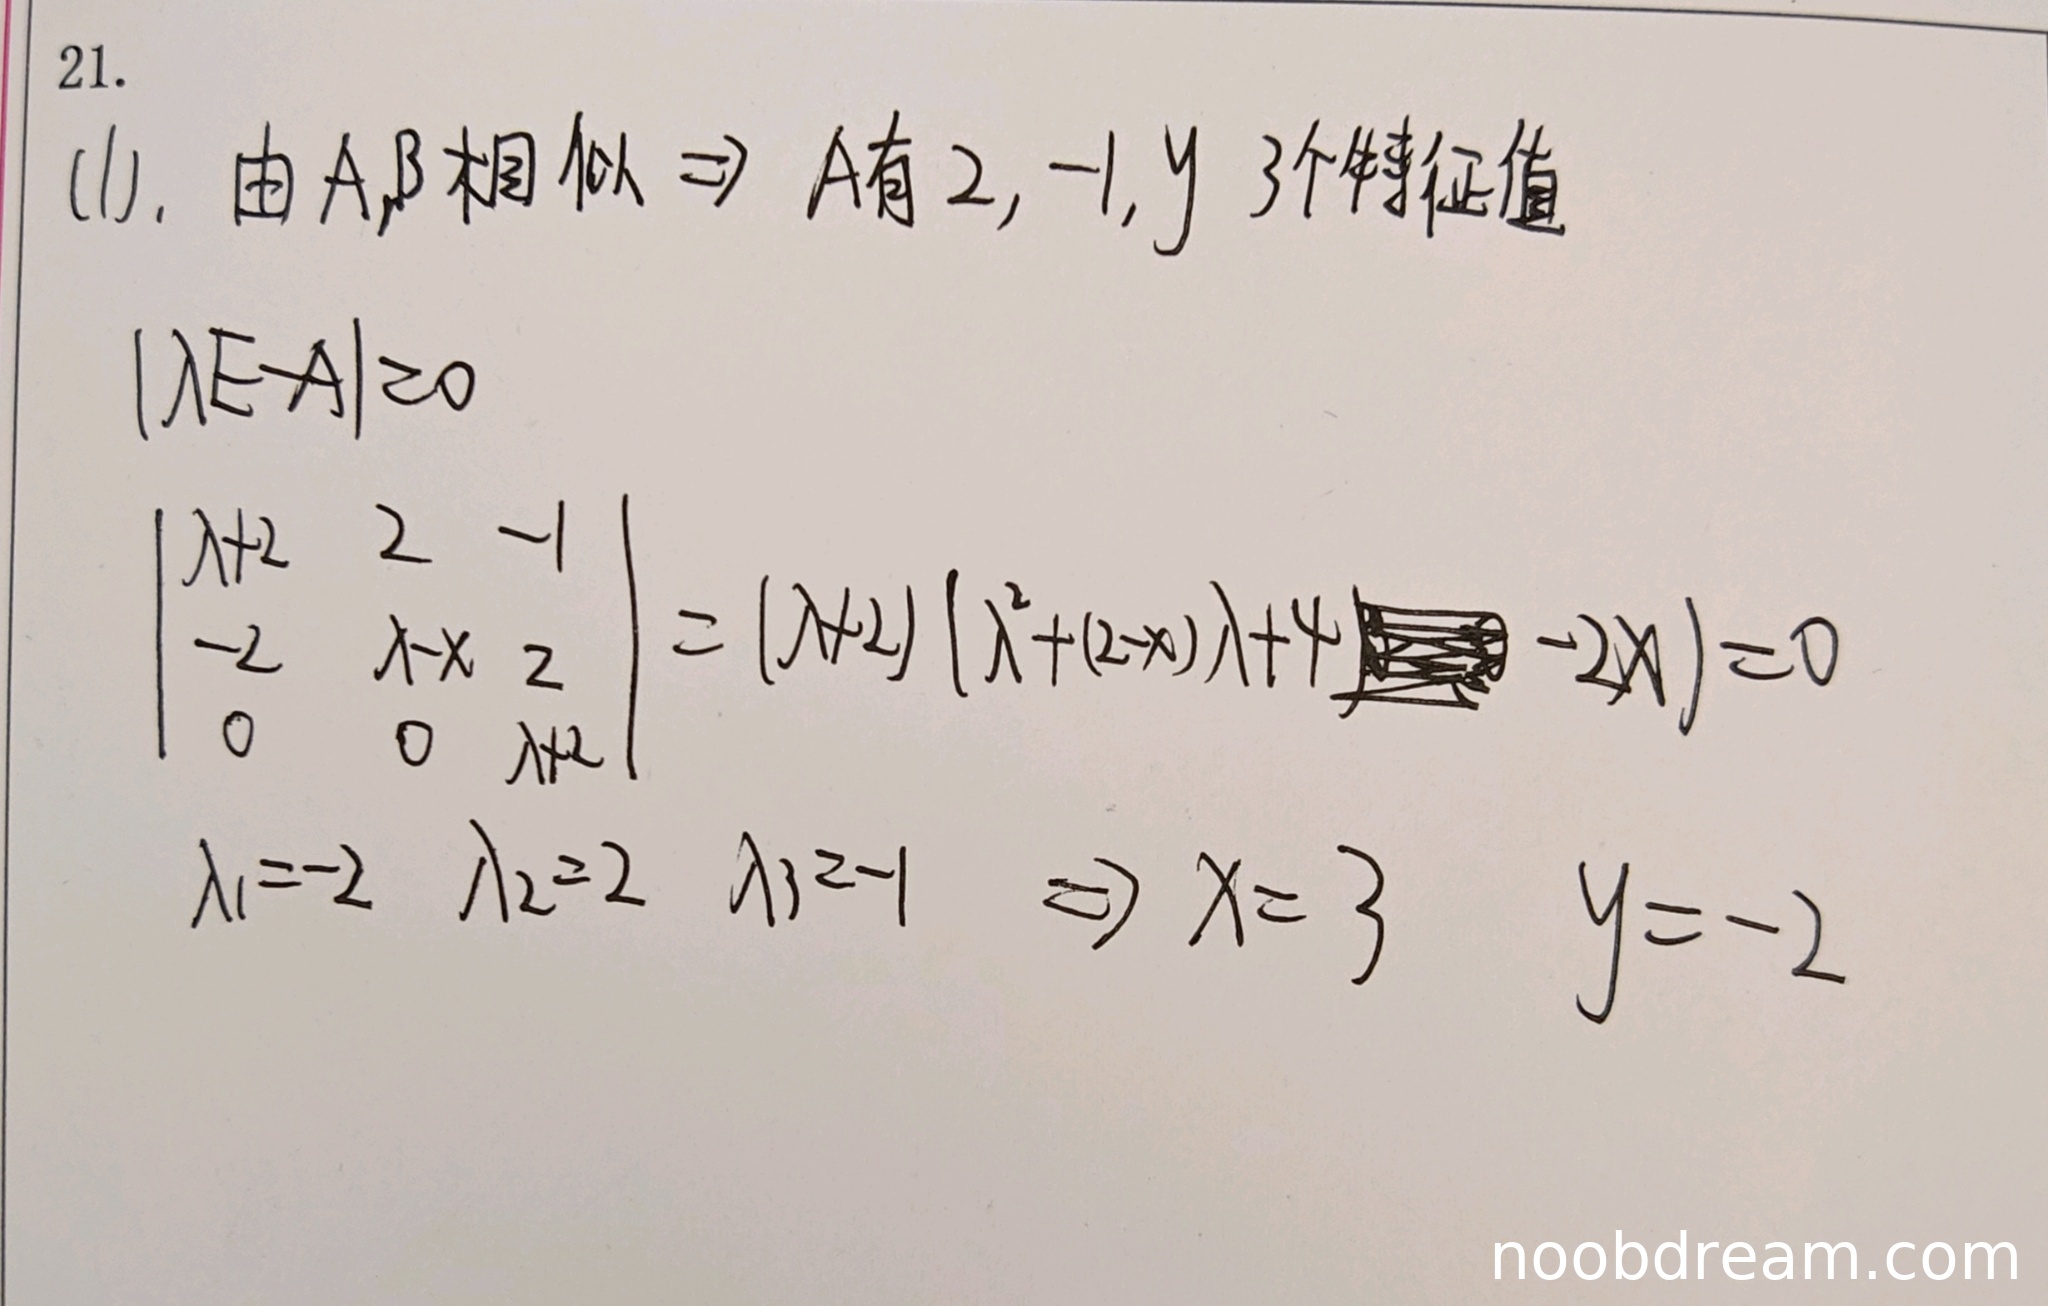 21.
(1). 由A,B相似 ⇒ A有2, -1, y 3个特征值
|λE-A|=0
| λ+2 2 -1 |
| -2 λ-x 2 | = (λ+2)(λ²+(2-x)λ+4 -2x)=0
| 0 0 λ+2 |
λ1=-2 λ2=2 λ3=-1 ⇒ x=3 y=-2
noobdream.com